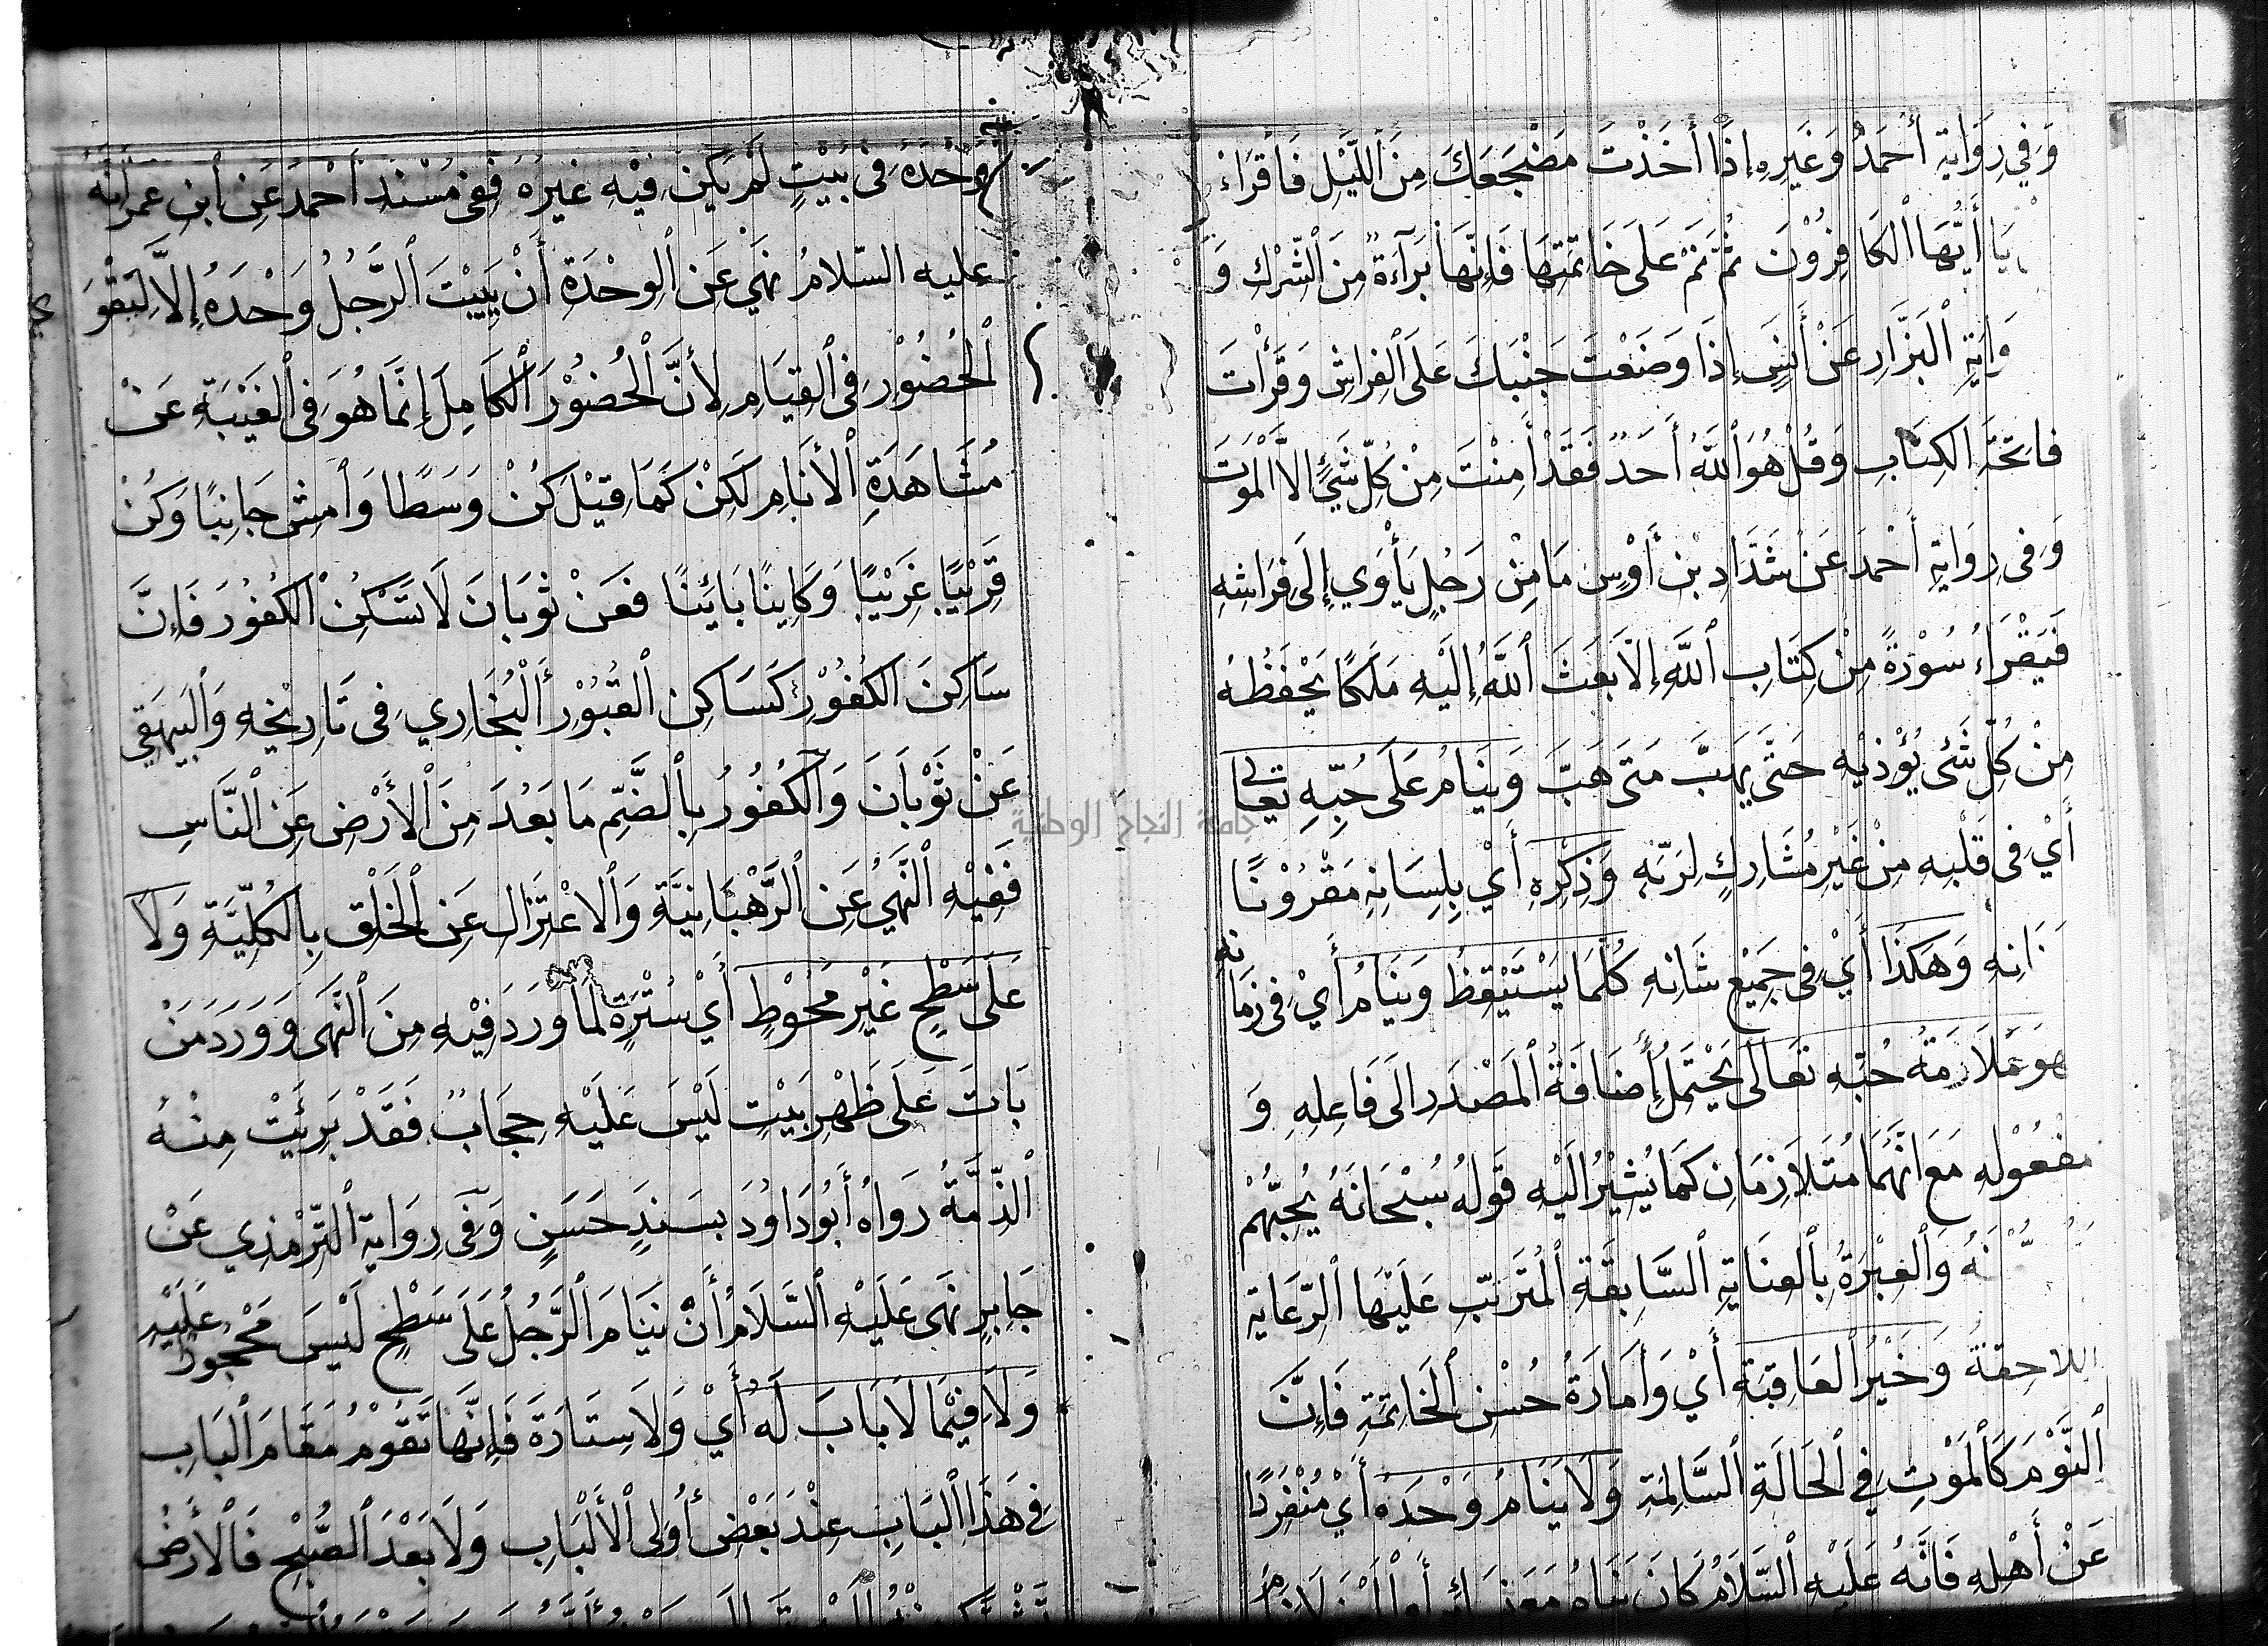 وَفِي رِوَايَةِ أَحْمَدَ وَغَيْرِهِ إِذَا أَخَذْتَ مَضْجَعَكَ مِنَ ٱللَّيْلِ فَاقْرَاءْ
يَا أَيُّهَا ٱلكَافِرُوْنَ ثُمَّ نَمْ عَلَى خَاتِمَتِهَا فَإِنَّهَا بَرَآءَةٌ مِنَ ٱلشِّرْكِ وَ
وَايَةِ ٱلبَزَّارِ عَنْ أَنَسٍ إِذَا وَضَعْتَ جَنْبَكَ عَلَى ٱلفِرَاشِ وَقَرَأْتَ
فَاتِحَةَ الكِتَابِ وَقُلْ هُوَ ٱللَّهُ أَحَدٌ فَقَدْ أَمِنْتَ مِنْ كُلِّ شَيْءٍ إلاَّ المَوْتَ
وَفِي رِوَايَةِ أَحْمَدَ عَنْ شَدَّادِ بْنِ أَوْسٍ مَا مِنْ رَجُلٍ يَأْوِي إِلَى فِرَاشِهِ
فَيَقْرَاءُ سُوْرَةً مِنْ كِتَابِ ٱللَّهِ إِلاَّ بَعَثَ ٱللَّهُ إِلَيْهِ مَلَكًا يَحْفَظُهُ
مِنْ كُلِّ شَئٍ يُؤْذِيْهِ حَتَّى يَهِبَّ مَتَى هَبَّ وَيَنَامُ عَلَى حُبِّهِ تَعَالَى
أَيْ فِي قَلْبِهِ مِنْ غَيْرِ مُشَارِكٍ لِرَبِّهِ وَذِكْرِهِ أَيْ بِلِسَانِهِ مَقْرُوْنًا
وَهَكَذَا أَيْ فِي جَمِيْعِ شَانِهِ كُلَّمَا يَسْتَيْقِظُ وَيَنَامُ أَيْ فِي زَمَانِهِ
حُبِّهِ تَعَالَى يَحْتَمِلُ إِضَافَةُ ٱلمَصْدَرِ الَى فَاعِلِهِ وَ
مَفْعُوْلِهِ مَعَ انَّهُمَا مُتَلاَزِمَانِ كَمَا يُشِيْرُ الَيْهِ قَوْلُهُ سُبْحَانَهُ يُحِبُّهُمْ
وَٱلعِبْرَةُ بِٱلعِنَايَةِ ٱلسَّابِقَةِ ٱلمُتَرَتِّبِ عَلَيْهَا ٱلرِّعَايَةِ
اللاحِقَةِ وَخَيْرُ ٱلعَاقِبَةِ أَيْ وَأَمَارَةُ حُسْنِ ٱلخَاتِمَةِ فَإِنَّ
ٱلنَّوْمَ كَٱلمَوْتِ فِي ٱلحَالَةِ ٱلسَّالِمَةِ وَلاَ يَنَامُ وَحْدَهُ أَيْ مُنْفَرِدًا
عَنْ أَهْلِهِ فَانَّهُ عَلَيْهِ ٱلسَّلاَمُ كَانَ يَنَامُ مَعَهُنَّ
وَحْدَهُ فِي بَيْتٍ لَمْ يَكُنْ فِيْهِ غَيْرُهُ فَفِي مُسْنَدِ أَحْمَدَ عَنِ ٱبْنِ عُمَرَ أَنَّهُ
عليه السّلامُ نَهَى عَنِ ٱلوِحْدَةِ أَنْ يَبِيْتَ ٱلرَّجُلُ وَحْدَهُ إِلاَّ لِتَقْوَى
ٱلحُضُوْرِ فِي ٱلقِيَامِ لِأَنَّ ٱلحُضُوْرَ ٱلكَامِلَ إِنَّمَا هُوَ فِي ٱلغَيْبَةِ عَنْ
مُشَاهَدَةِ ٱلأَنَامِ لَكِنْ كَمَا قِيْلَ كُنْ وَسَطًا وَٱمْشِ جَانِبًا وَكُنْ
قَرِيْبًا غَرِيْبًا وَكَايِنًا بَايِنًا فَعَنْ ثَوْبَانَ لَا تَسْكُنْ ٱلكُفُوْرَ فَإِنَّ
سَاكِنَ ٱلكُفُوْرِ كَسَاكِنِ ٱلقُبُوْرِ ٱلبُخَارِي فِي تَارِيْخِهِ وَٱلبَيْهَقِي
عَنْ ثَوْبَانَ وَٱلكُفُوْرُ بِٱلضَّمِّ مَا بَعُدَ مِنَ ٱلأَرْضِ عَنِ ٱلنَّاسِ
فَفِيْهِ ٱلنَّهْيُ عَنِ ٱلرَّهْبَانِيَّةِ وَٱلاعْتِزَالِ عَنِ ٱلخَلْقِ بِالكُلِّيَّةِ وَلاَ
عَلَى سَطْحٍ غَيْرِ مَحُوْطٍ أَيْ سُتْرَةٍ لِمَا وَرَدَ فِيْهِ مِنَ ٱلنَّهْيِ وَوَرَدَ مَنْ
بَاتَ عَلَى ظَهْرِ بَيْتٍ لَيْسَ عَلَيْهِ حِجَابٌ فَقَدْ بَرِئَتْ مِنْهُ
ٱلذِّمَّةُ رَوَاهُ أَبُوْ دَاوُدَ بِسَنَدٍ حَسَنٍ وَفِي رِوَايَةِ ٱلتِّرْمِذِي عَنْ
جَابِرٍ نَهَى عَلَيْهِ ٱلسَّلاَمُ أَنْ يَنَامَ ٱلرَّجُلُ عَلَى سَطْحٍ لَيْسَ مَحْجُوْرًا عَلَيْهِ
وَلاَ فِيْمَا لاَ بَابَ لَهُ أَيْ وَلاَ سِتَارَةَ فَإِنَّهَا تَقُوْمُ مَقَامَ ٱلبَابِ
فِي هَذَا ٱلبَابِ عِنْدَ بَعْضِ أُوْلِي ٱلأَلْبَابِ وَلاَ بَعْدَ ٱلصُّبْحِ فَٱلأَرْضُ
جامعة النجاح الوطنية